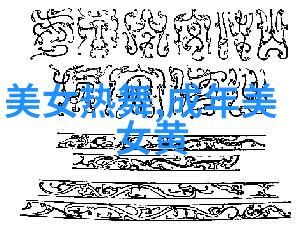 美女热舞,成年美
女黄